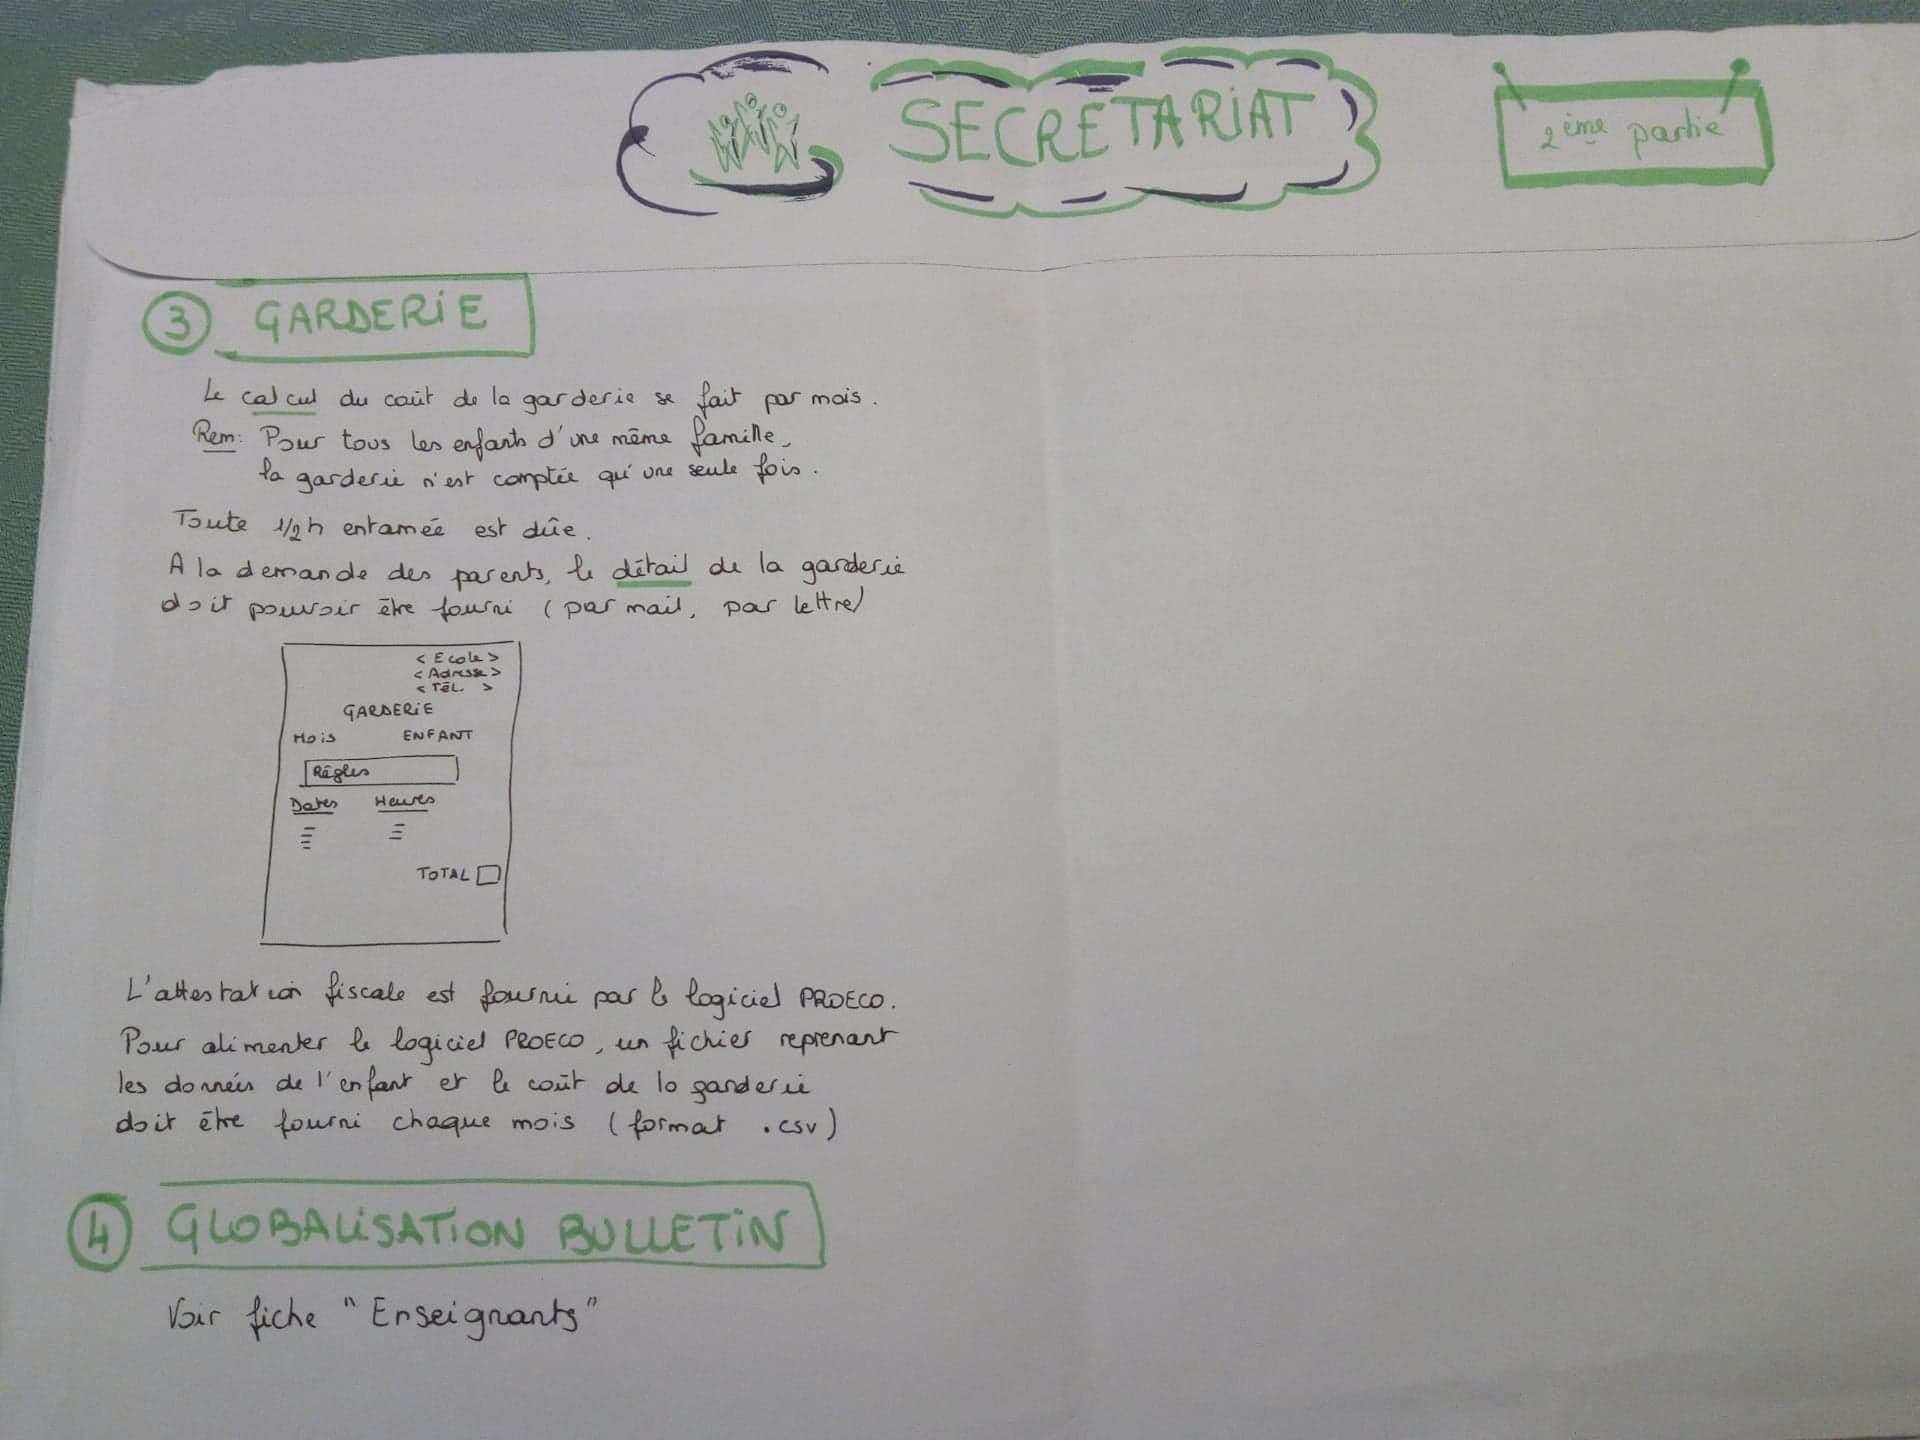 SECRETARIAT
2ème partie
3 GARDERIE
Le calcul du coût de la garderie se fait par mois.
Rem: Pour tous les enfants d'une même famille,
la garderie n'est comptée qu'une seule fois.
Toute 1/2h entamée est dûe.
A la demande des parents, le détail de la garderie
doit pouvoir être fourni (par mail, par lettre)
<Ecole>
<Adresse>
<Tél. >
GARDERIE
Mois ENFANT
Règles
Dates Heures
TOTAL
L'attestation fiscale est fournie par le logiciel PROECO.
Pour alimenter le logiciel PROECO, un fichier reprenant
les données de l'enfant et le coût de la garderie
doit être fourni chaque mois (format .csv)
4 GLOBALISATION BULLETIN
Voir fiche "Enseignants"